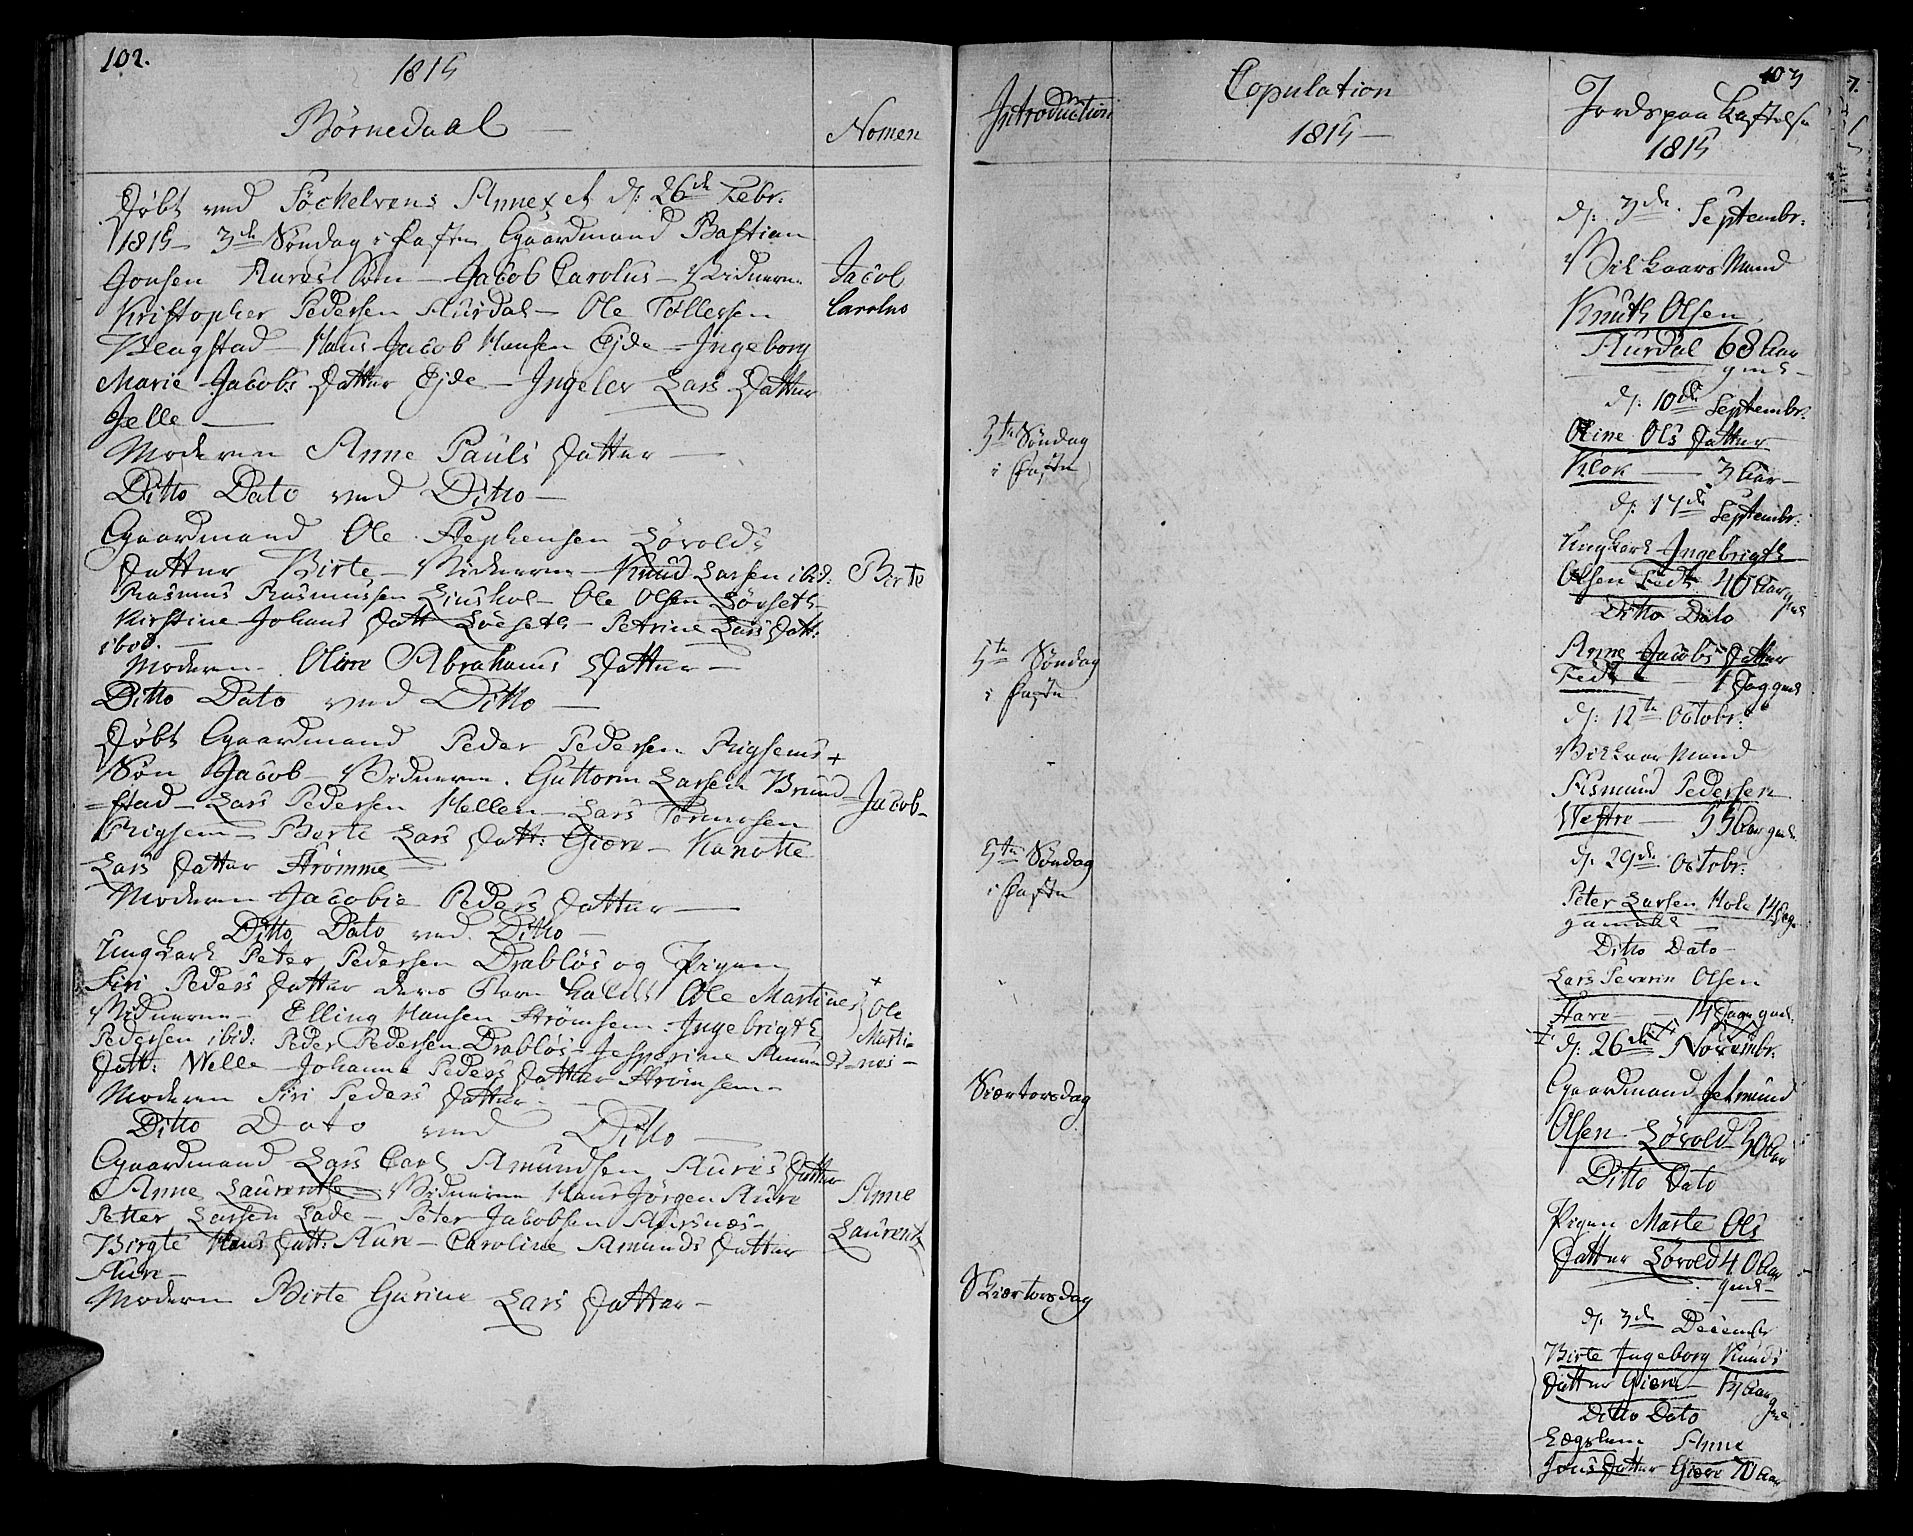 102.
1815
Børnedaab —
Nomen
Døbt ved Søckelvens Annex et d: 26de Febr.
1815 3de Søndag i Fasten Gaardmand Bastian
Jonsen Aures Søn — Jacob Carolus — Vidnerne
Kristopher Pedersen Aurdal — Ole Tollefsen
— Hans Jacob Hansen Ejde — Ingeborg
Marie Jacobs Datter Ejde — Ingeler Lars Datter
Jelle —
Moderen Anne Pauls Datter —
Jacob
Carolus
Ditto Dato ved Ditto —
Gaardmand Ole Stephensen Løvolds
Datter Birte — Vidnerne Knud Larsen ibid:
Rasmus Rasmussen — Ole Olsen Løvseth —
Kirstine Johans Datt Løvseth — Petrine Lars Datt:
ibid. —
Moderen — Oline Abrahams Datter —
Birte
Ditto Dato ved Ditto —
Døbt Gaardmand Peder Pedersen Rigsems +
Søn Jacob — Vidnerne. Guttorm Larsen Brund
-stad — Lars Pedersen Hellem — Lars
Rigsem — Berte Lars Datt: Giære — Kanotte
Lars Datter Strømme —
Moderen Jacobie Peders Datter —
Jacob —
Ditto Dato ved Ditto —
Ungkarl Peter Pedersen Drabløs og Pigen
Siri Peders Datter deres Barn kaldt Ole Martinus
Vidnerne — Elling Hansen Strømsem — Ingebrigth
Pedersen ibid: Peder Pedersen Drabløs — Jesperine Amunds
Datt: Welle — Johanne Peders Datter Strømsem —
Moderen Siri Peders Datter —
+
Ole
Marti-
-nos —
Ditto Dato ved Ditto —
Gaardmand Lars Carl Amundsen Aures Datter
Anne Laurentse — Vidnerne Hans Jørgen Aure
Petter Larsen Lade — Peter Jacobsen Aursnes —
Birgte Hans Datt: Aure — Caroline Amunds Datter
Aure —
Moderen Birte Gurine Lars Datter —
Anne
Laurentz
Introduction
3te Søndag
i Faste
5te Søndag
i Faste
5te Søndag
i Faste
Skiærtorsdag
Skiærtorsdag
Copulation
1815 —
103
Jordspaa Kastelse
1815
d: 3de Septembr:
Vilkaars Mand
Knuth Olsen
Aurdal 68 Aar
gml —
d: 10de Septembr:
Oline Ols Datter
Klok — 3 Aar —
d: 17de Septembr:
Ungkarl Ingebrigth
Olsen Fedt 40 Aar
gml
Ditto Dato
Anne Jacobs Datter
Fedt — 1 Dag gml
d: 12te Octobr:
Vilkaar Mand
Sismund Pedersen
Westre — 55 Aar gml
d: 29de Octobr:
Peter Larsen Hole 14 Dage
gammel —
Ditto Dato —
Lars Severin Olsen
Hare — 14 Dage gml:
d: 26de Novembr:
Gaardmand Jetmund
Olsen Løvold 50 Aar
Ditto Dato
Pigen Marte Ols
Datter Løvold 40 Aar
gml —
d: 3de December
Birte Ingeborg Knuds
Datter Giære — Aar
gml
Ditto Dato
Lægslem Anne
Jons Datter Giære 70 Aar